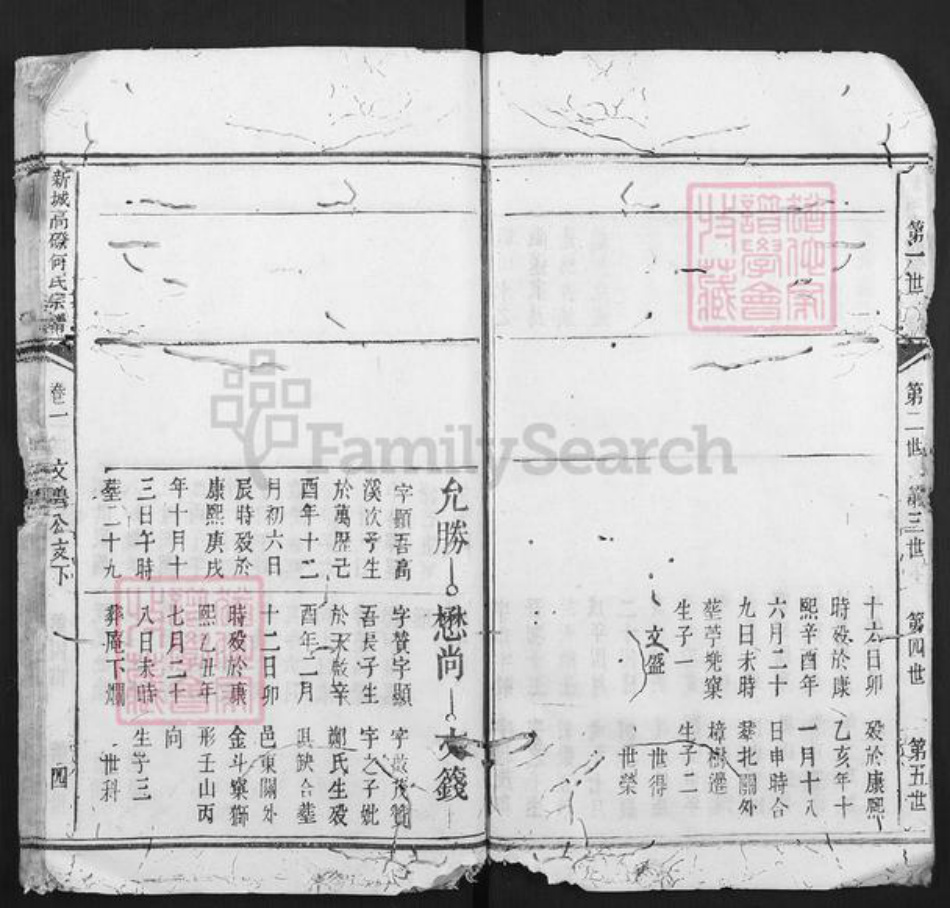 第一世
第二世
第三世
第四世
第五世
十六日卯
時歿於康
熙辛酉年
六月二十
九日未時
葬苧兠窠
生子一
文盛
歿於康熙
乙亥年十
一月十八
日申時合
葬北關外
樟樹邊
生子二
世得
世榮
允勝
懋尚
文籛
字顯吾高
溪次子生
於萬歷己
酉年十二
月初六日
辰時歿於
康熙庚戌
年十月十
三日午時
墓二十九
字贊宇顯
吾長子生
於天啟辛
酉年二月
十二日卯
時歿於康
熙乙丑年
七月二十
八日未時
葬庵下爛
字啟茂贊
宇之子妣
謝氏生歿
俱缺合墓
邑東關外
金斗窠獅
形壬山丙
向
生子三
世科
新城高磜何氏宗譜
卷一
文
公支下
四
FamilySearch
譜學會